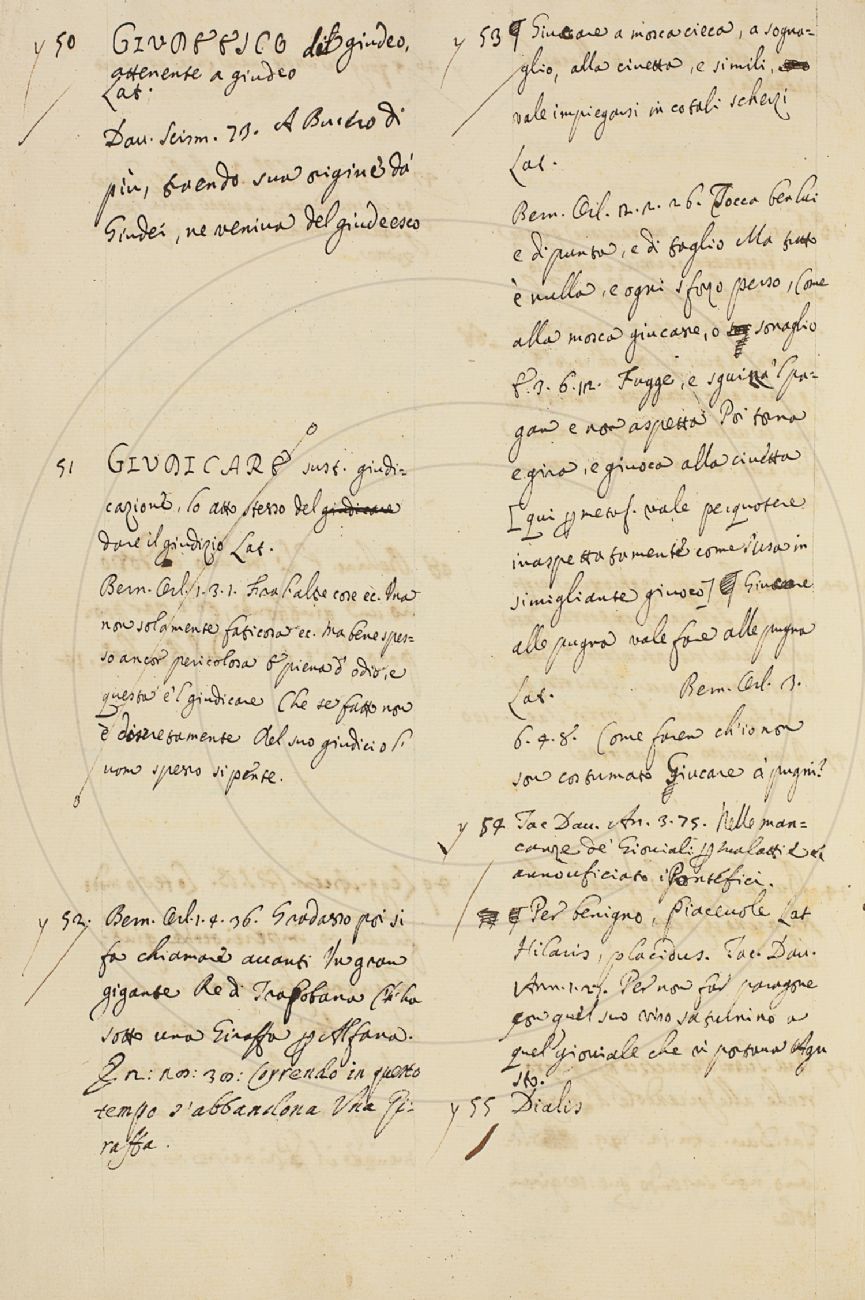 y 50 GIUDEESCO di giudeo,
attenente a giudeo
Lat.
Dav. Scism. 73. A Bucero di
più, traendo sua origine da'
Giudei, ne veniva del giudeesco
51 GIUDICARE sust. giudi=
cazione, lo atto stesso del giudicare
dare il giudizio Lat.
Bern. Orl. 1. 3. 1. Fra l'altre cose ec. Una
non solamente faticosa ec. Ma bene spes=
so ancor pericolosa E piena d'odio, e
questa è 'l giudicare Che se fatto non
è discretamente Del suo giudicio l'
uom spesso si pente.
y 52. Bern. Orl. 1. 4. 36. Gradasso poi si
fa chiamare avanti Un gran
gigante Re di Trapobana Ch'ha
sotto una Giraffa per Alfana.
E 2: 20: 30: Correndo in questo
tempo s'abbandona Una Gi=
raffa.
y 53 ¶ Giucare a mosca cieca, a sona=
glio, alla civetta, e simili,
vale impiegarsi in cotali scherzi
Lat.
Bern. Orl. 2. 2. 26. Tocca ben lui
e di punta, e di taglio Ma tutto
è nulla, e ogni sforzo perso, Come
alla mosca giucasse, o sonaglio
E. 3. 6. 12. Fugge, e sguizza 'l pa=
gan e non aspetta Poi torna
e gira, e giuoca alla civetta
[qui per metaf. vale percuotere
inaspettatamente come s'usa in
simigliante giuoco] ¶ Giucare
alle pugna vale fare alle pugna
Lat. Bern. Orl. 3.
6. 48. Come faren ch'io non
son costumato Giucare a' pugni?
y 54 Tac Dav. An. 3. 75. Nelle man=
canze de' Gioviali per malattie
anno uficiato i Pontefici.
¶ Per benigno, Piacevole Lat
Hilaris, placidus. Tac. Dav.
Ann. 1. 21. Per non far paragone
con quel suo viso saturnino a
quel gioviale che vi portava Agu
sto.
y 55 Dialis